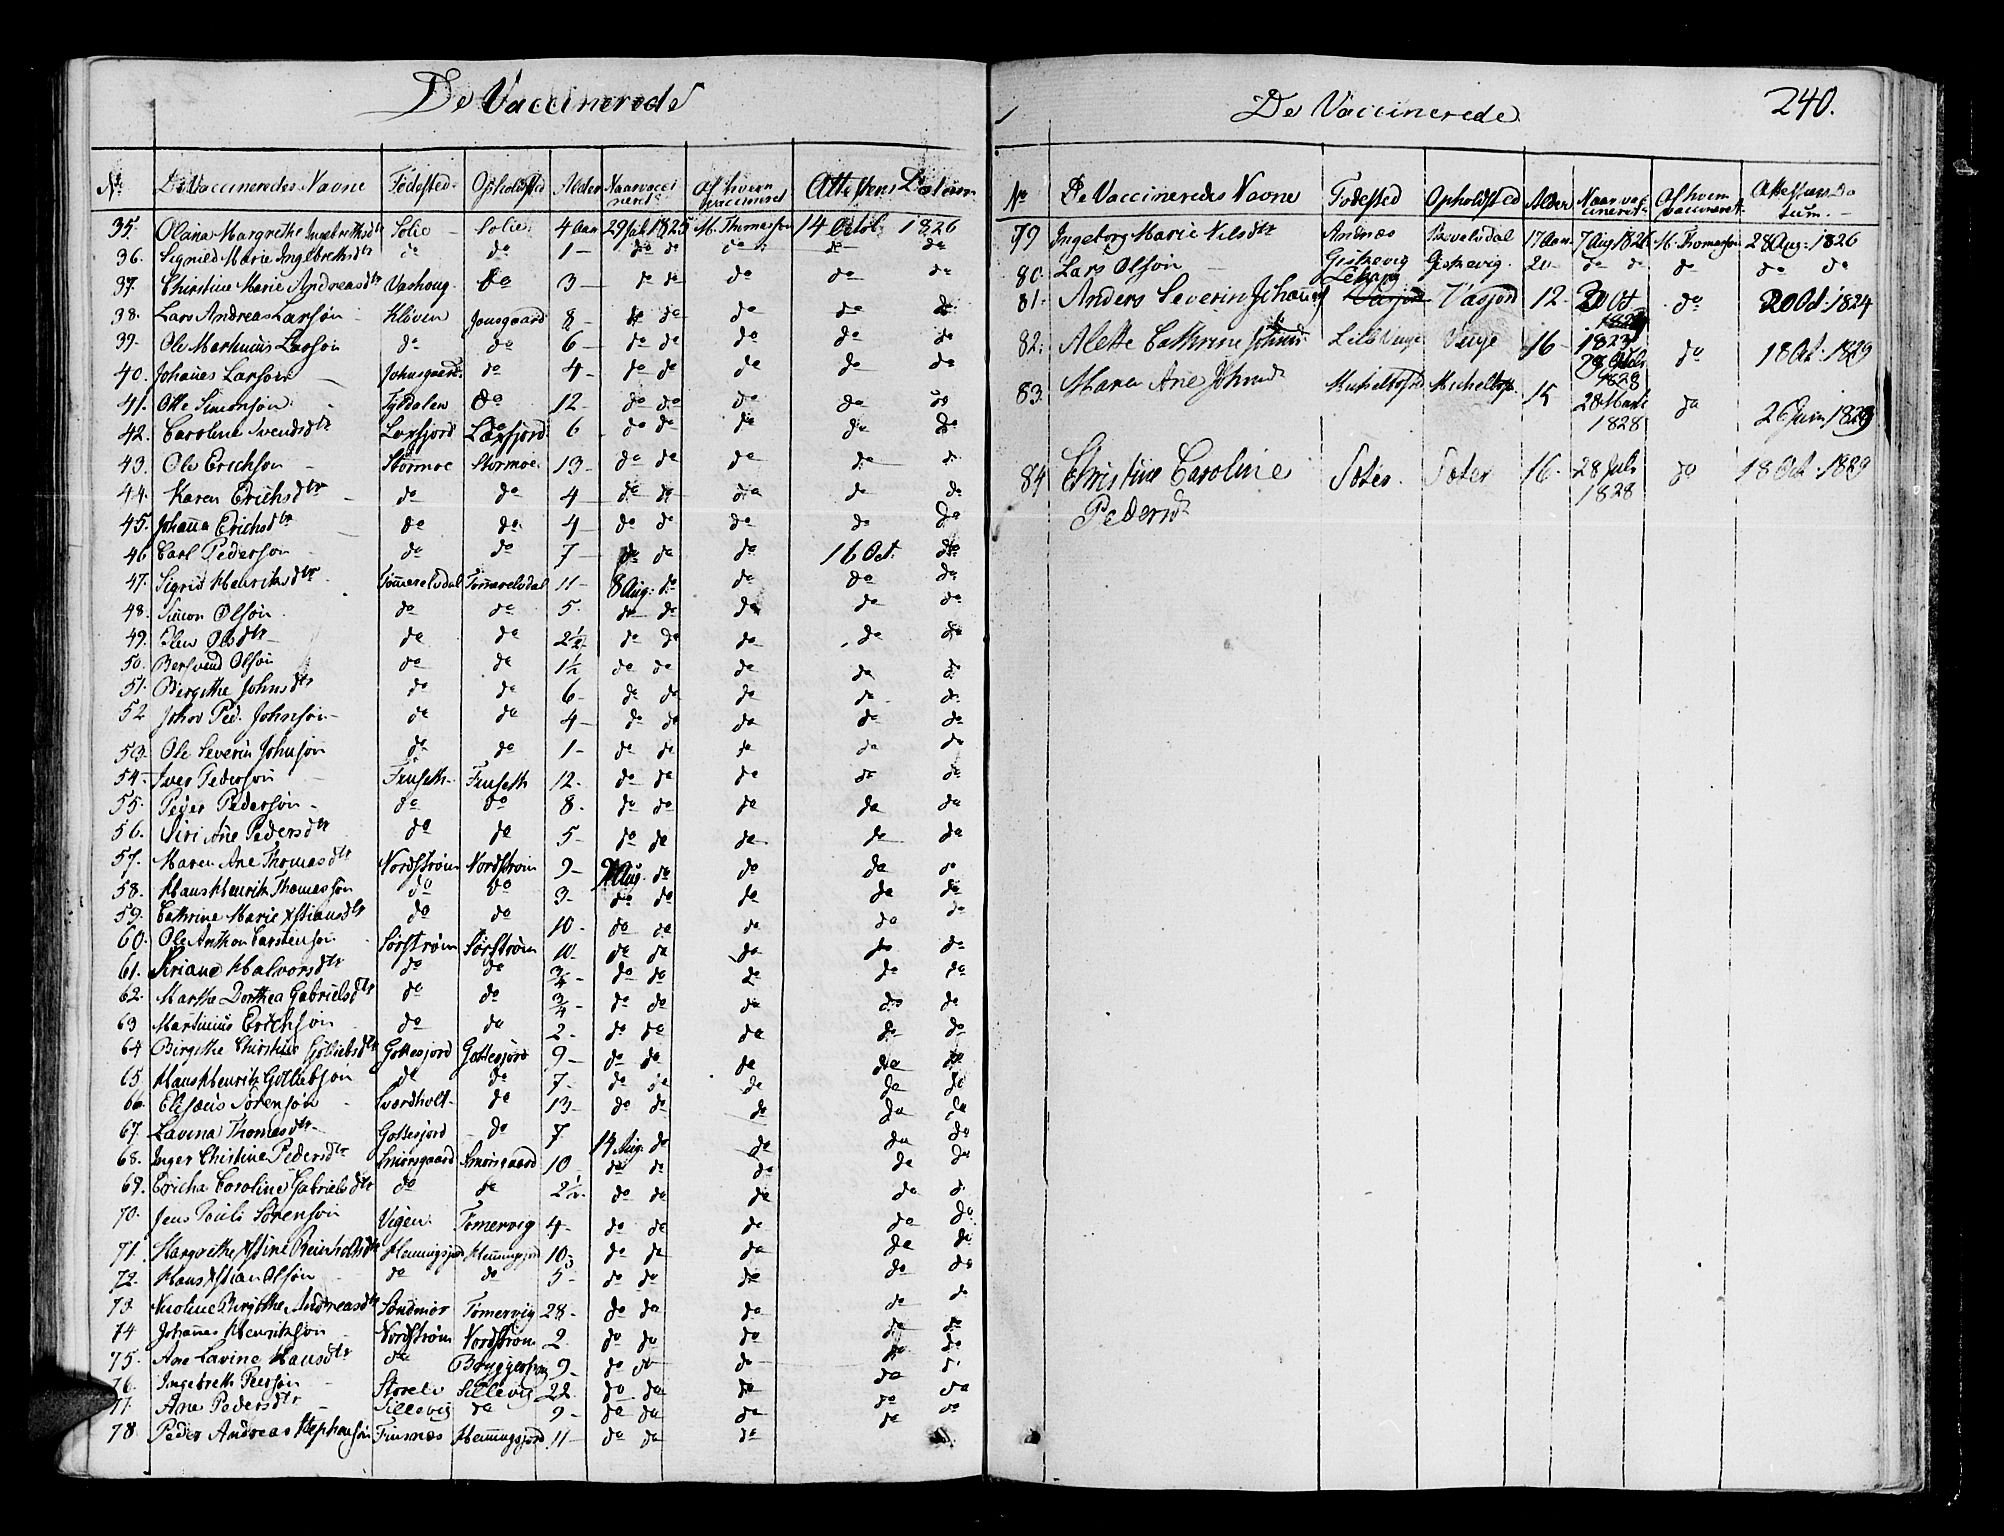 De Vaccinerede
No De Vaccineredes Navne Fødested Opholdsted Alder Naar vaccineret Af hvem vaccineret Attestens Datum
35. Olana Margrethe Ingebrethsdtr Solie Solie 4 Aar 29 Juli 1825 M. Thomasson 14 Octob: 1826
36. Signild Marie Ingebrethsdtr do do 1 do do do do do
37. Christine Marie Andreasdtr Vashoug do 3 do do do do do
38. Lars Andreas Larsøn Kløven Jonsgaard 8 do do do do do
39. Ole Markusius Larsøn do do 6 do do do do do
40. Johañes Larsøn Johnsgaard do 4 do do do do do
41. Otte Simonsøn Tyddalen do 12 do do do do do
42. Caroline Svendsdtr Laxfjord Laxfjord 6 do do do do do
43. Ole Erichsøn Stormoe Stormoe 13 do do do do do
44. Karen Erichsdtr do do 4 do do do do do
45. Johaña Erichsdtr do do 4 do do do do do
46 Carl Pedersøn do do 7 do do do 16 Oct. do
47. Sigrid Henriksdtr Tømerelvdal Tømerelvdal 11 8 Aug. do do do do
48. Simon Olsøn do do 5. do do do do do
49. Elen Olsdtr do do 2½ do do do do do
50. Bersvend Olsøn do do 1½ do do do do do
51. Birgithe Johnsdtr do do 6 do do do do do
52 John Ped. Johnsøn do do 4 do do do do do
53. Ole Severin Johnsøn do do 1 do do do do do
54. Iver Pedersøn Finseth Finseth 12. do do do do do
55. Peder Pedersøn do do 8. do do do do do
56. Siri Añe Pedersdtr do do 5 do do do do do
57. Maren Ane Thomasdtr Nordstrøm Nordstrøm 9 Aug. do do do do
58. Hans Henrik Thomassøn do do 3 do do do do do
59. Cathrine Marie Xstiansdtr do do 10 do do do do do
60. Ole Anthon Carstensøn Sørstrøm Sørstrøm 10 do do do do do
61. Siriane Halvorsdtr do do ¾ do do do do do
62. Marthe Dorthea Gabrielsdtr do do ¾ do do do do do
63 Martinius Erichsøn do do 2 do do do do do
64 Birgithe Christine Gotliebsdtr Gottesjord Gottesjord 9 do do do do do
65. Hans Henrik Gotliebsøn do do 7 do do do do do
66 Elisæus Sørensøn Sværdholt do 13 do do do do do
67. Lavina Thomasdtr Gottesjord do 7 14 Aug. do do do do
68. Inger Christine Pedersdtr Smørsgaard Smørsgaard 10 do do do do do
69. Ericha Caroline Gabrielsdtr do do 2½ do do do do do
70. Jens Pauli Sørensøn Vigen Tømervig 4 do do do do do
71. Margrethe Xstine Reinholtsdtr Hemingsjord Hemingsjord 10 do do do do do
72. Hans Xstian Olsøn do do 5 do do do do do
73. Nicoline Birgithe Andreasdtr Søndmør Tømervig 28 do do do do do
74 Johañes Henriksøn Nordstrøm Nordstrøm 2. do do do do do
75. Ane Lavine Hansdtr do 9 do do do do do
76. Ingebreth Peersøn Storelv Sillevig 22. do do do do do
77. Ane Pedersdtr Sillevig do 9 do do do do do
78. Peder Andreas Stephensøn Finsnæs Hemingsjord 11 do do do
De Vaccinerede
240.
No De Vaccineredes Navne Fødested Opholdsted Alder Naar vaccineret Af hvem vaccineret Attestens Datum
79 Ingeborg Marie Nilsdtr Andnæs Bævelsdal 17 Aar 7 Aug 1826 M. Thomasson 28 Aug. 1826
80. Lars Olsøn Giskevig Giskevig 20 do do do do do
81. Anders Severin Vasjord 12 Oct do 20 Oct 1824
82. Alette Cathrine Lille Vinje Vinje 16 do 18 Oct. 1829
1828
83. Maren Ane Johnsd Mickelbost Mickelbost 15 28 Marti 1828 do 26 Juni 1829
84 Christine Caroline Søter Søter 16 28 Juli 1828 do 18 Oct. 1829
Pedersd